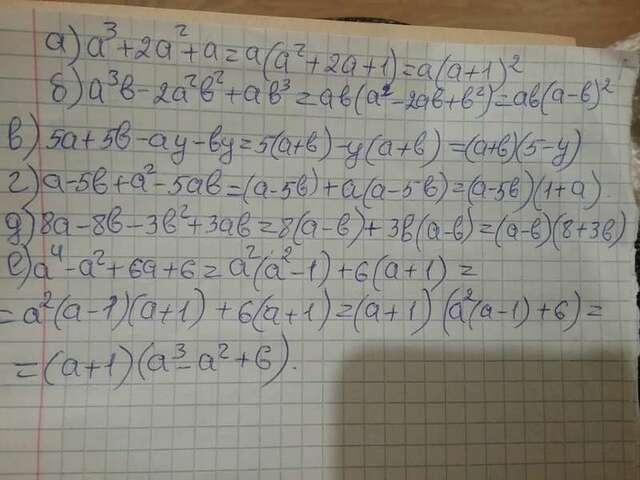 а) a³+2a²+a=a(a²+2a+1)=a(a+1)²
б) a³b-2a²b²+ab³=ab(a²-2ab+b²)=ab(a-b)²
в) 5a+5b-ay-by=5(a+b)-y(a+b)=(a+b)(5-y)
г) a-5b+a²-5ab=(a-5b)+a(a-5b)=(a-5b)(1+a).
д) 8a-8b-3b²+3ab=8(a-b)+3b(a-b)=(a-b)(8+3b)
е) a⁴-a²+6a+6=a²(a²-1)+6(a+1)=
=a²(a-1)(a+1)+6(a+1)=(a+1)(a²(a-1)+6)=
=(a+1)(a³-a²+6).